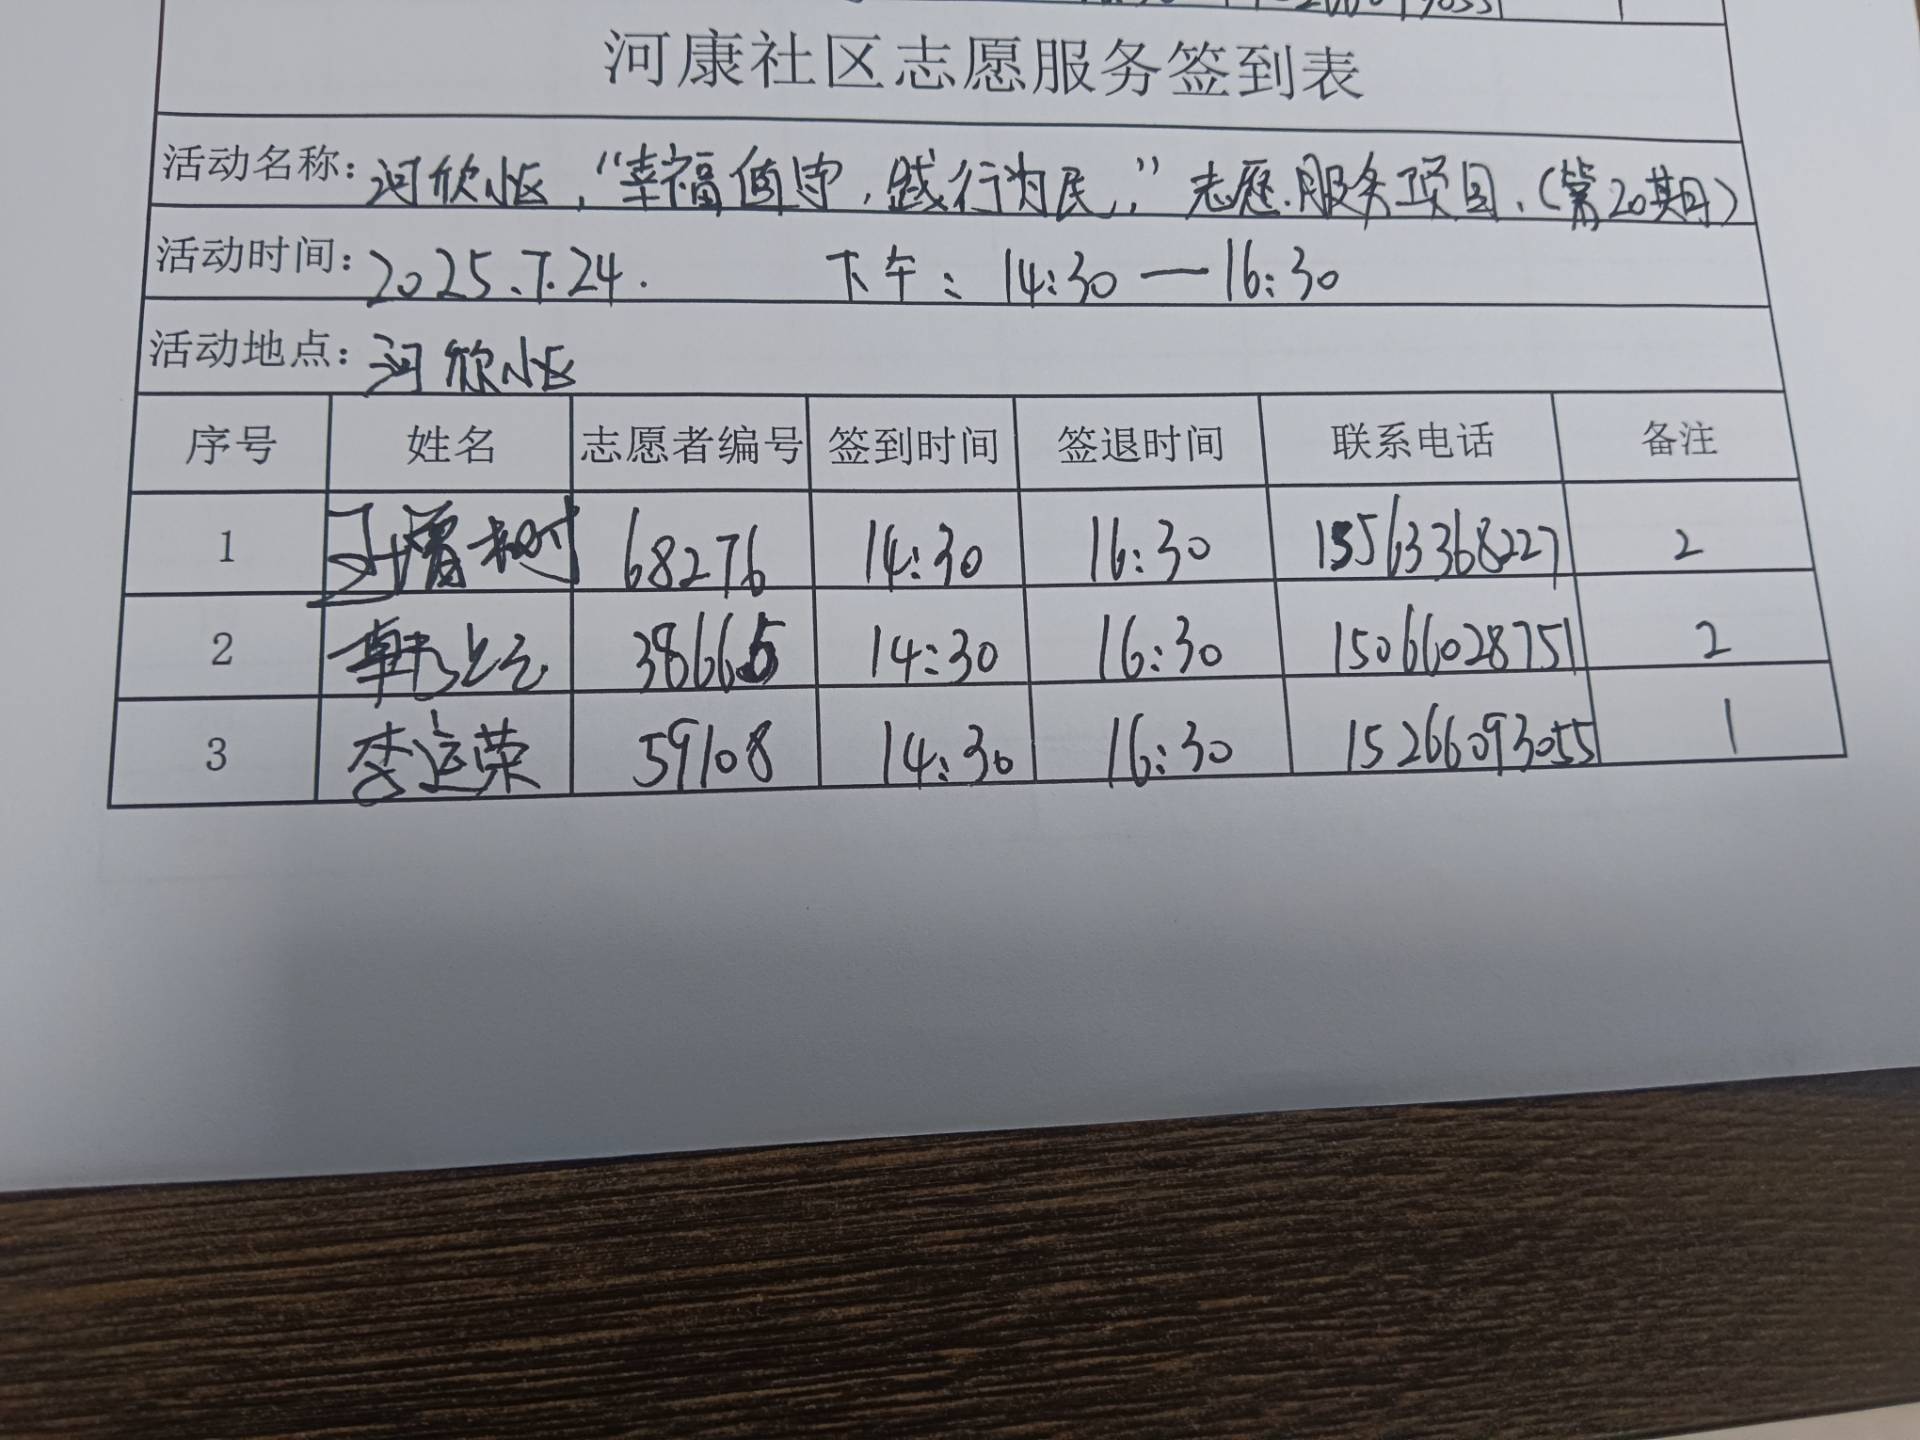 河康社区志愿服务签到表
活动名称：河欣小区，“幸福值守，践行为民，”志愿服务项目.（第20期）
活动时间：2025.7.24. 下午：14:30—16:30
活动地点：河欣小区
序号 姓名 志愿者编号 签到时间 签退时间 联系电话 备注
1 68276 14:30 16:30 15563368227 2
2 韩 3866 14:30 16:30 15066028751 2
3 李运荣 59108 14:30 16:30 15266093055 1